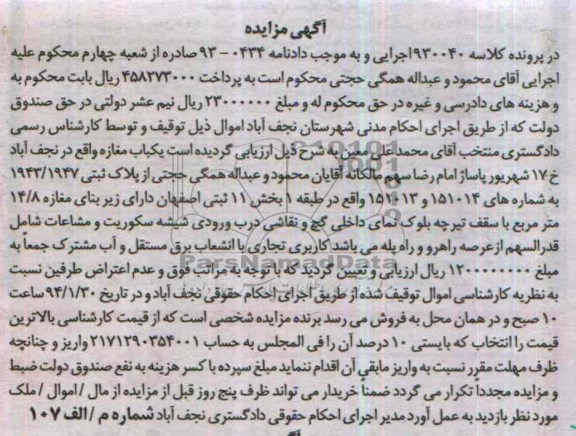 آگهی مزایده
در پرونده کلاسه ۹۳۰۰۴۰ اجرایی و به موجب دادنامه ۰۴۳۴ - ۹۳ صادره از شعبه چهارم محکوم علیه
اجرایی آقای محمود و عبداله همگی حجتی محکوم است به پرداخت ۴۵۸۲۷۳۰۰۰ ریال بابت محکوم به
و هزینه های دادرسی و غیره در حق محکوم له و مبلغ ۲۳۰۰۰۰۰۰ ریال نیم عشر دولتی در حق صندوق
دولت که از طریق اجرای احکام مدنی شهرستان نجف آباد اموال ذیل توقیف و توسط کارشناس رسمی
دادگستری منتخب آقای محمدعلی معین به شرح ذیل ارزیابی گردیده است یکباب مغازه واقع در نجف آباد
خ ۱۷ شهریور پاساژ امام رضا سهم مالکانه آقایان محمود و عبداله همگی حجتی از پلاک ثبتی ۱۹۴۳/۱۹۴۷
به شماره های ۱۵۱۰۱۴ و ۱۵۱۰۱۳ واقع در طبقه ۱ بخش ۱۱ ثبتی اصفهان دارای زیر بنای مغازه ۱۴/۸
متر مربع با سقف تیرچه بلوک نمای داخلی گچ و نقاشی درب ورودی شیشه سکوریت و مشاعات شامل
قدرالسهم از عرصه راهرو و راه پله می باشد کاربری تجاری با انشعاب برق مستقل و آب مشترک جمعاً به
مبلغ ۱۲۰۰۰۰۰۰۰۰ ریال ارزیابی و تعیین گردید که با توجه به مراتب فوق و عدم اعتراض طرفین نسبت
به نظریه کارشناسی اموال توقیف شده از طریق اجرای احکام حقوقی نجف آباد و در تاریخ ۹۴/۱/۳۰ ساعت
۱۰ صبح و در همان محل به فروش می رسد برنده مزایده شخصی است که از قیمت کارشناسی بالاترین
قیمت را انتخاب که بایستی ۱۰ درصد آن را فی المجلس به حساب ۲۱۷۱۲۹۰۳۵۴۰۰۱ واریز و چنانچه
ظرف مهلت مقرر نسبت به واریز مابقی آن اقدام ننماید مبلغ سپرده با کسر هزینه به نفع صندوق دولت ضبط
و مزایده مجدداً تکرار می گردد ضمناً خریدار می تواند ظرف پنج روز قبل از مزایده از مال / اموال / ملک
مورد نظر بازدید به عمل آورد مدیر اجرای احکام حقوقی دادگستری نجف آباد شماره م / الف ۱۰۷
ParsNamadData